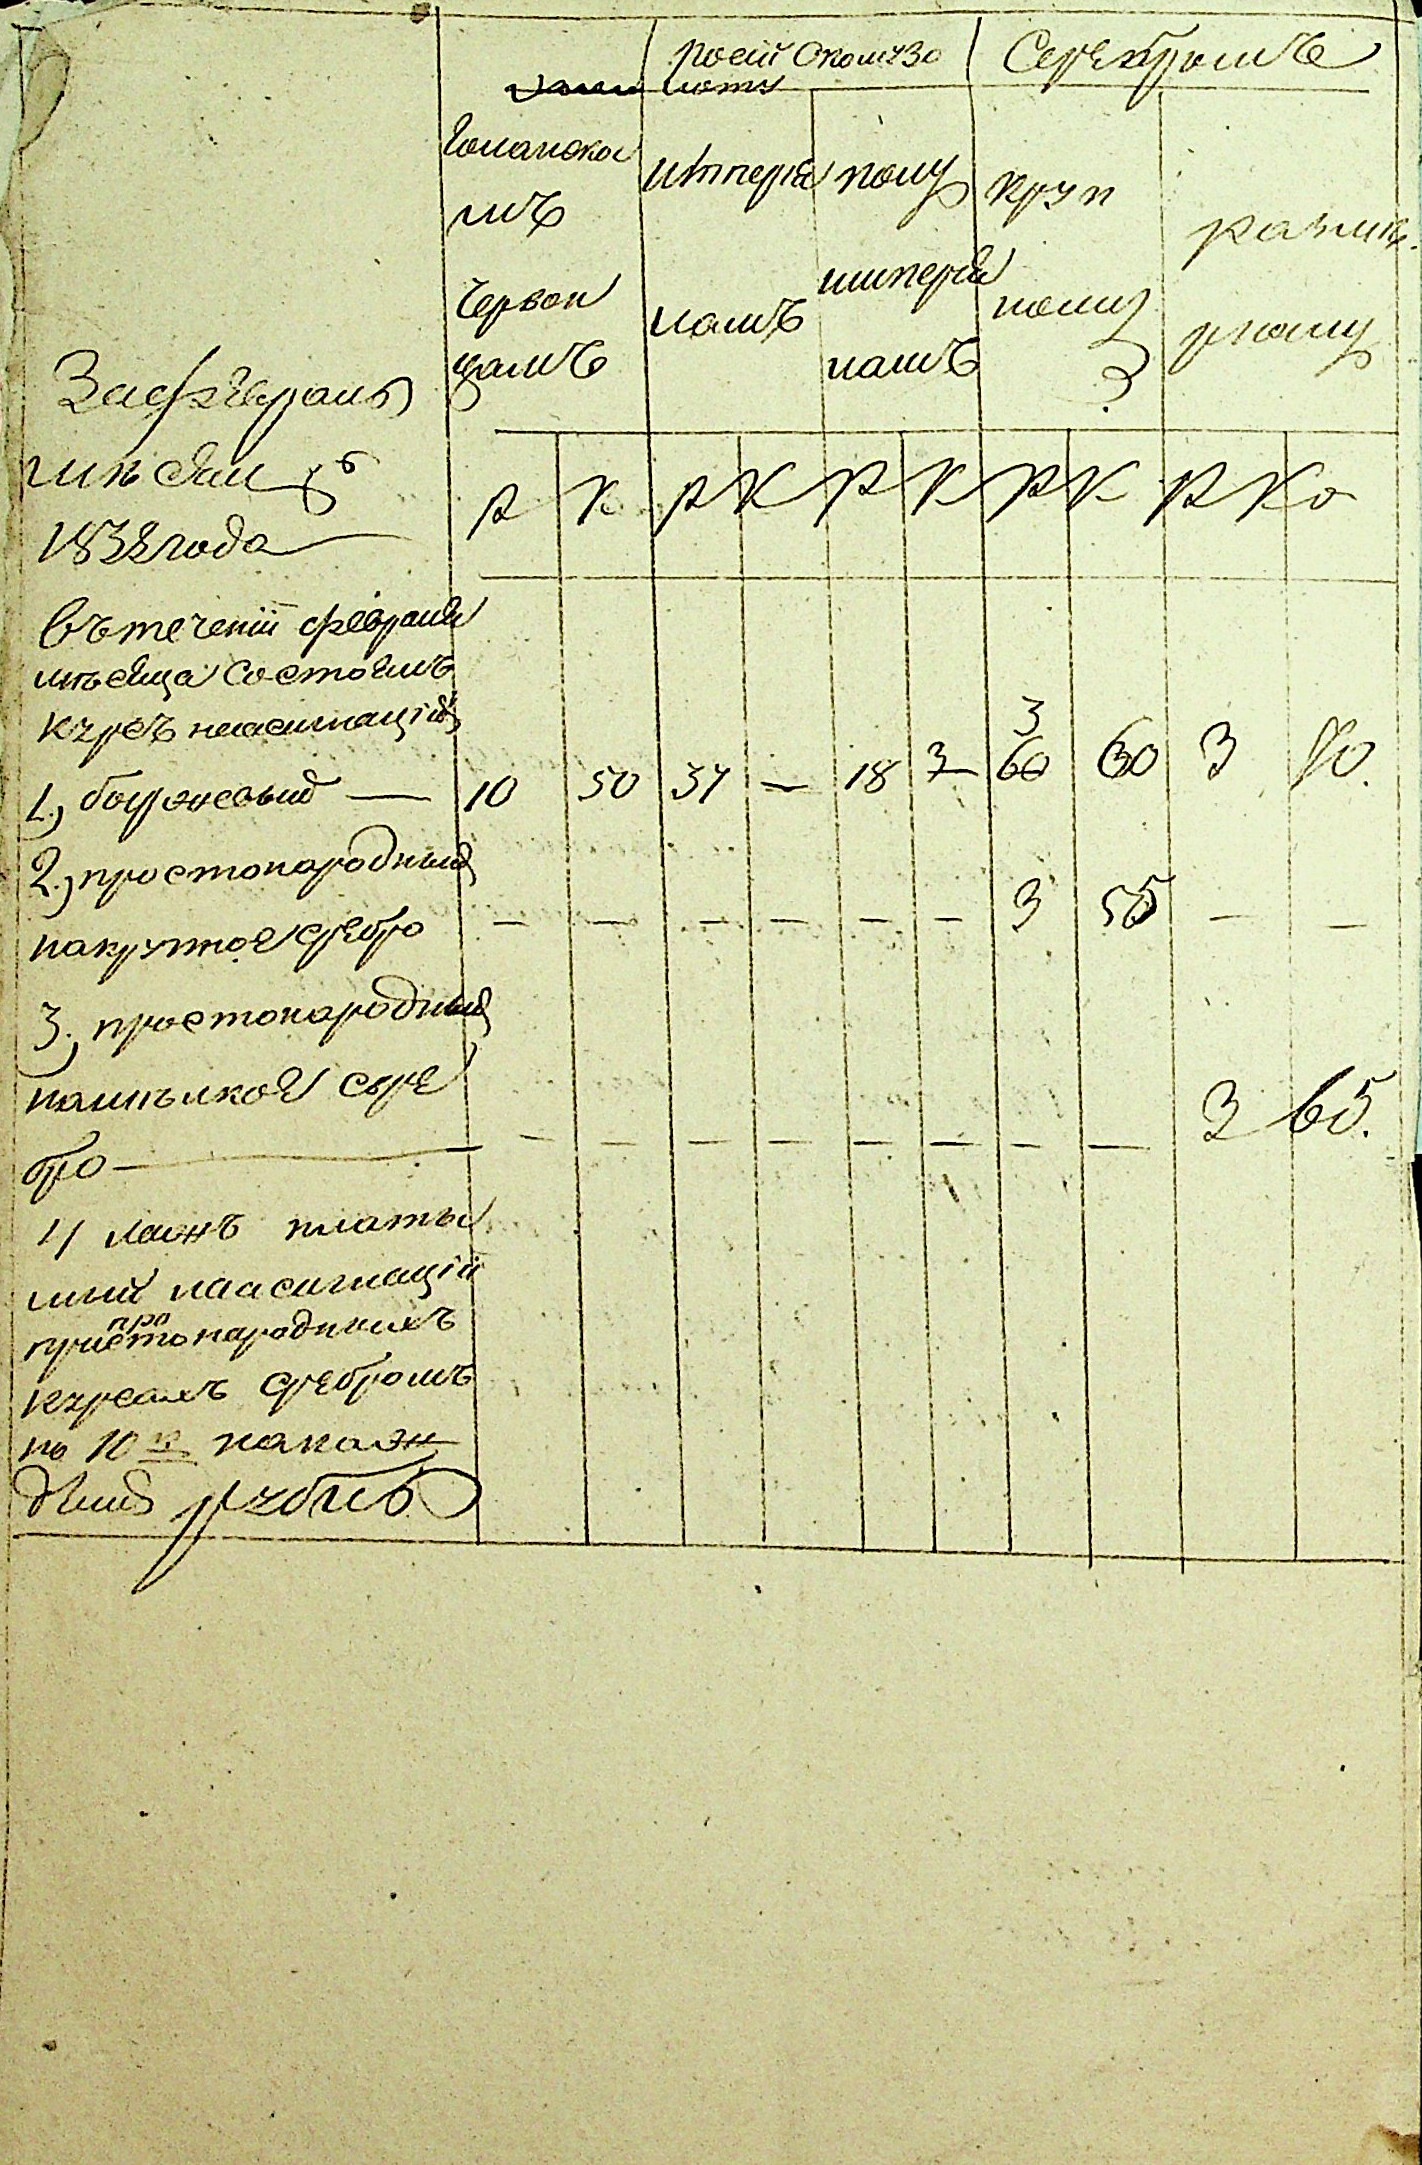 Росій Скому Зо
лоту
Серебромъ
Голанскы
мъ
Червон
цамъ
имперіа
ламъ
полу
имперіа
ламъ
круп
ному
размѣ
рному
За февраль
мѣсяцъ
1832 года
Р К Р К Р К Р К Р Ко
Въ теченіи февраля
мѣсяца Состоялъ
курсъ на асигнаціи
1.) биржевый — 10 50 37 — 18 3 60 60 3 70.
2.) простонародный
на крупное сребро — — — — — — 3 55 — —
3.) простонародный
на мѣлкое сере
бро — — — — — — — — — 3 65.
4) лажъ платы
мый на асигнаціи
при
простонародныхъ
курсахъ сребромъ
по 10 к на каж
дый рубль